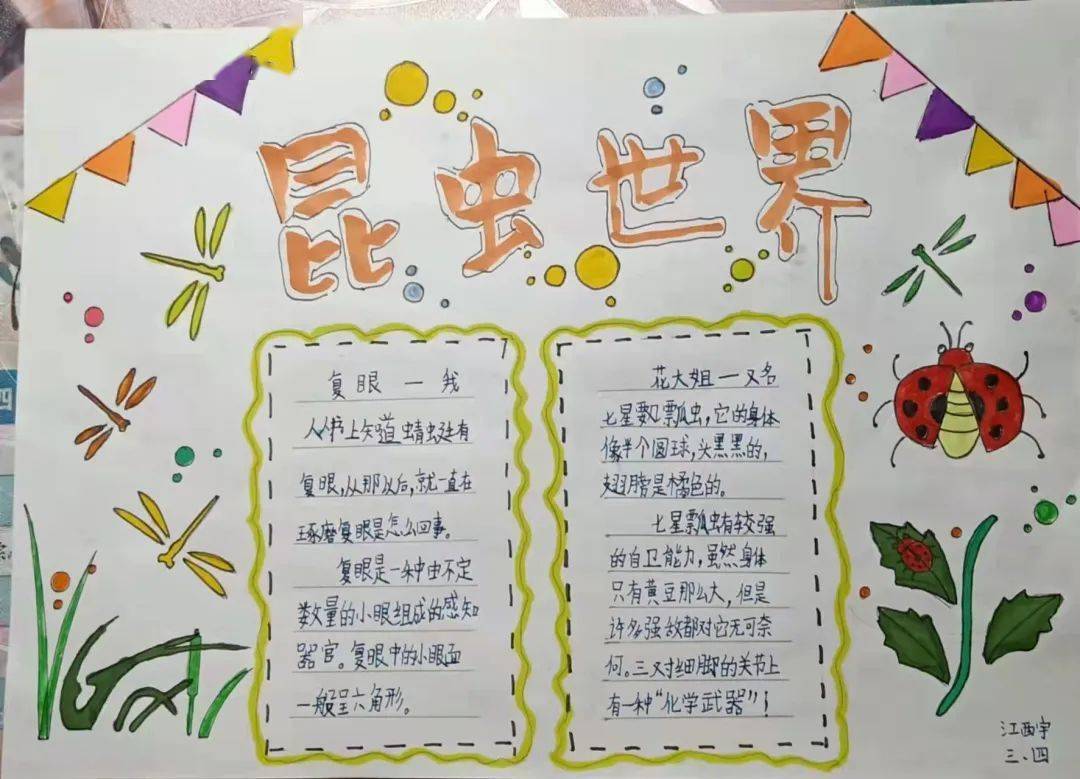 昆虫世界
复眼一我
从书上知道蜻蜓有
复眼,从那以后,就一直在
琢磨复眼是怎么回事。
复眼是一种由不定
数量的小眼组成的感知
器官。复眼中的小眼面
一般呈六角形。
花大姐一又名
七星瓢虫,它的身体
像半个圆球,头黑黑的,
翅膀是橘色的。
七星瓢虫有较强
的自卫能力,虽然身体
只有黄豆那么大,但是
许多强敌都对它无可奈
何。三对细脚的关节上
有一种“化学武器”!
江西宇
三、四
四